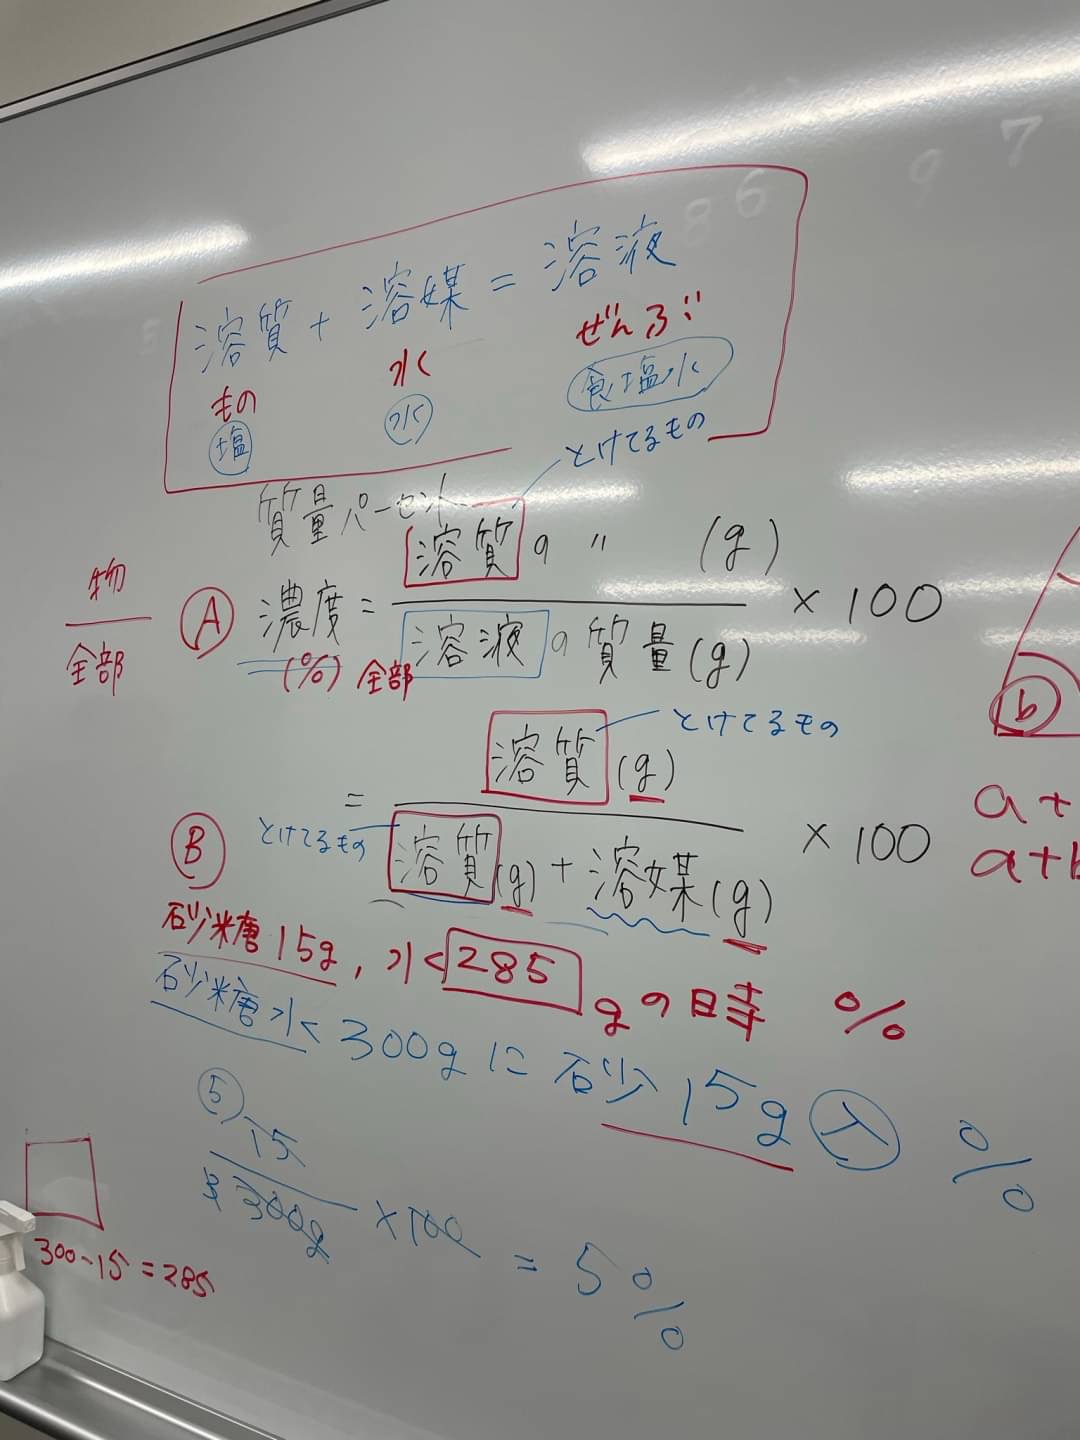 7
9
6
8
溶質 + 溶媒 = 溶液
もの 水 ぜんぶ
塩 水 食塩水
とけてるもの
質量パーセント
物
全部
A 濃度 = 溶質の 〃 (g)
溶液の質量(g)
× 100
(%) 全部
溶質(g) とけてるもの
=
溶質(g) + 溶媒(g)
× 100
B とけてるもの
b
a+
a+b
砂糖15g, 水285gの時 %
砂糖水300gに砂15g入 %
5
15
3 300g
× 100 = 5%
300-15=285